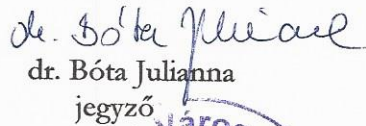 dr. Bóta Julianna
dr. Bóta Julianna
jegyző
Város